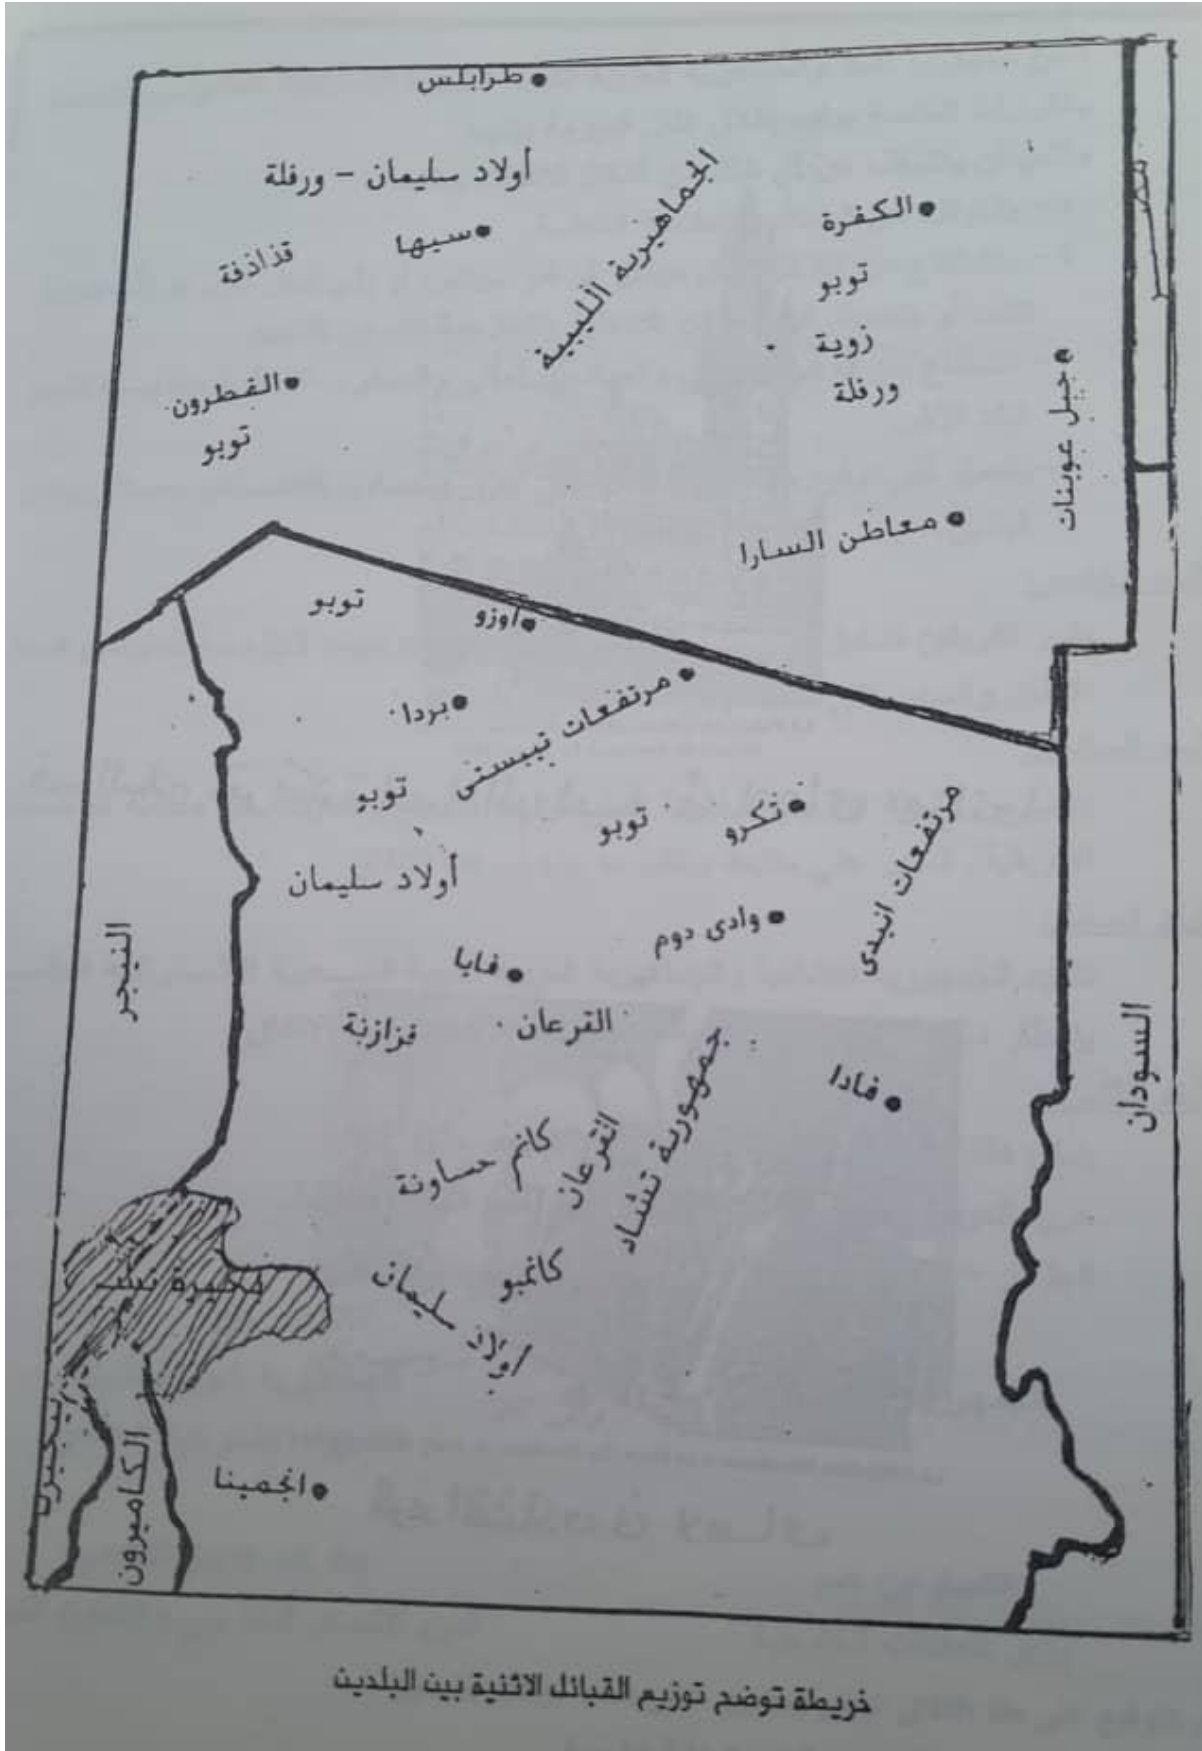 طرابلس
أولاد سليمان - ورفلة
الجماهيرية الليبية
الكفرة
سبها
قذاذفة
توبو
زوية
ورفلة
جبل عوينات
القطرون
توبو
معاطن السارا
توبو
أوزو
مرتفعات تيبستى
بردا
توبو
توبو
تكرو
مرتفعات انيدى
أولاد سليمان
وادى دوم
النيجر
فايا
القرعان
قزازنة
السودان
جمهورية تشاد
فادا
كانم حساونة
القرعان
كانمبو
أولاد سليمان
بحيرة تشـ
الكاميرون
انجمينا
خريطة توضح توزيع القبائل الاثنية بين البلدين